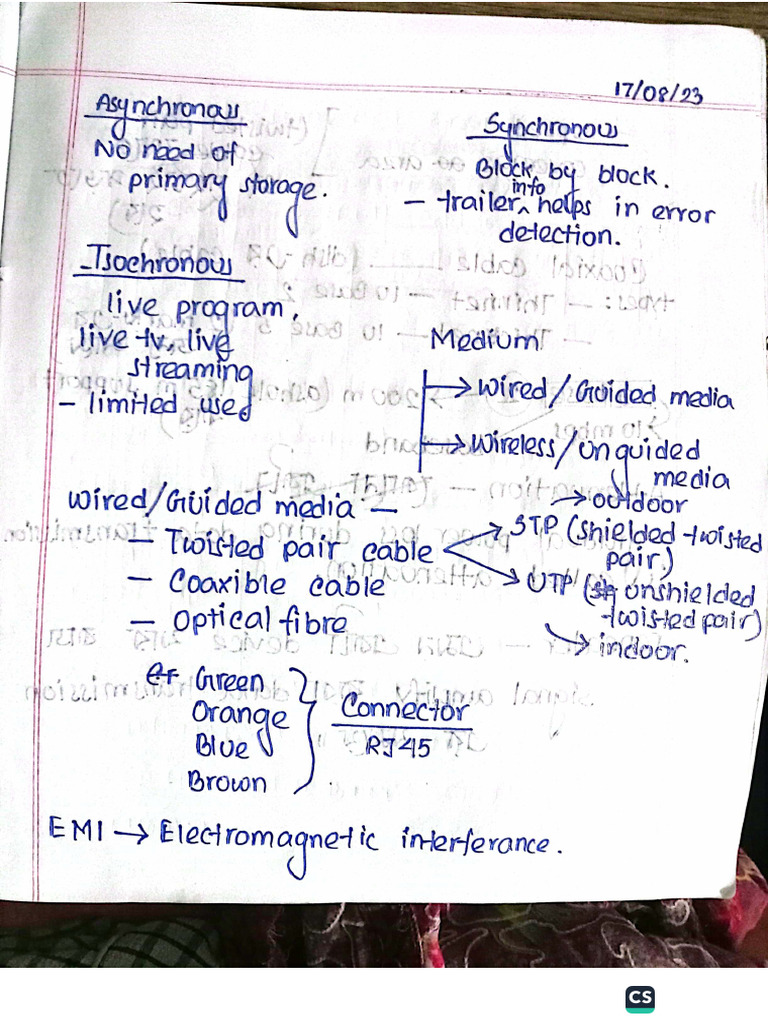 17/08/23
Asynchronous
No need of
primary storage.
Synchronous
Block by block.
- trailer info helps in error
detection.
Isochronous
live program,
live tv, live
streaming
- limited used
Medium
→ Wired / Guided media
→ Wireless / Unguided
media
Wired / Guided media -
→ outdoor
- Twisted pair cable
STP (shielded twisted
pair.)
UTP (unshielded
twisted pair)
→ indoor.
- Coaxible cable
- Optical fibre
Green
Orange
Blue
Brown
Connector
RJ45
EMI → Electromagnetic interferance.
CS